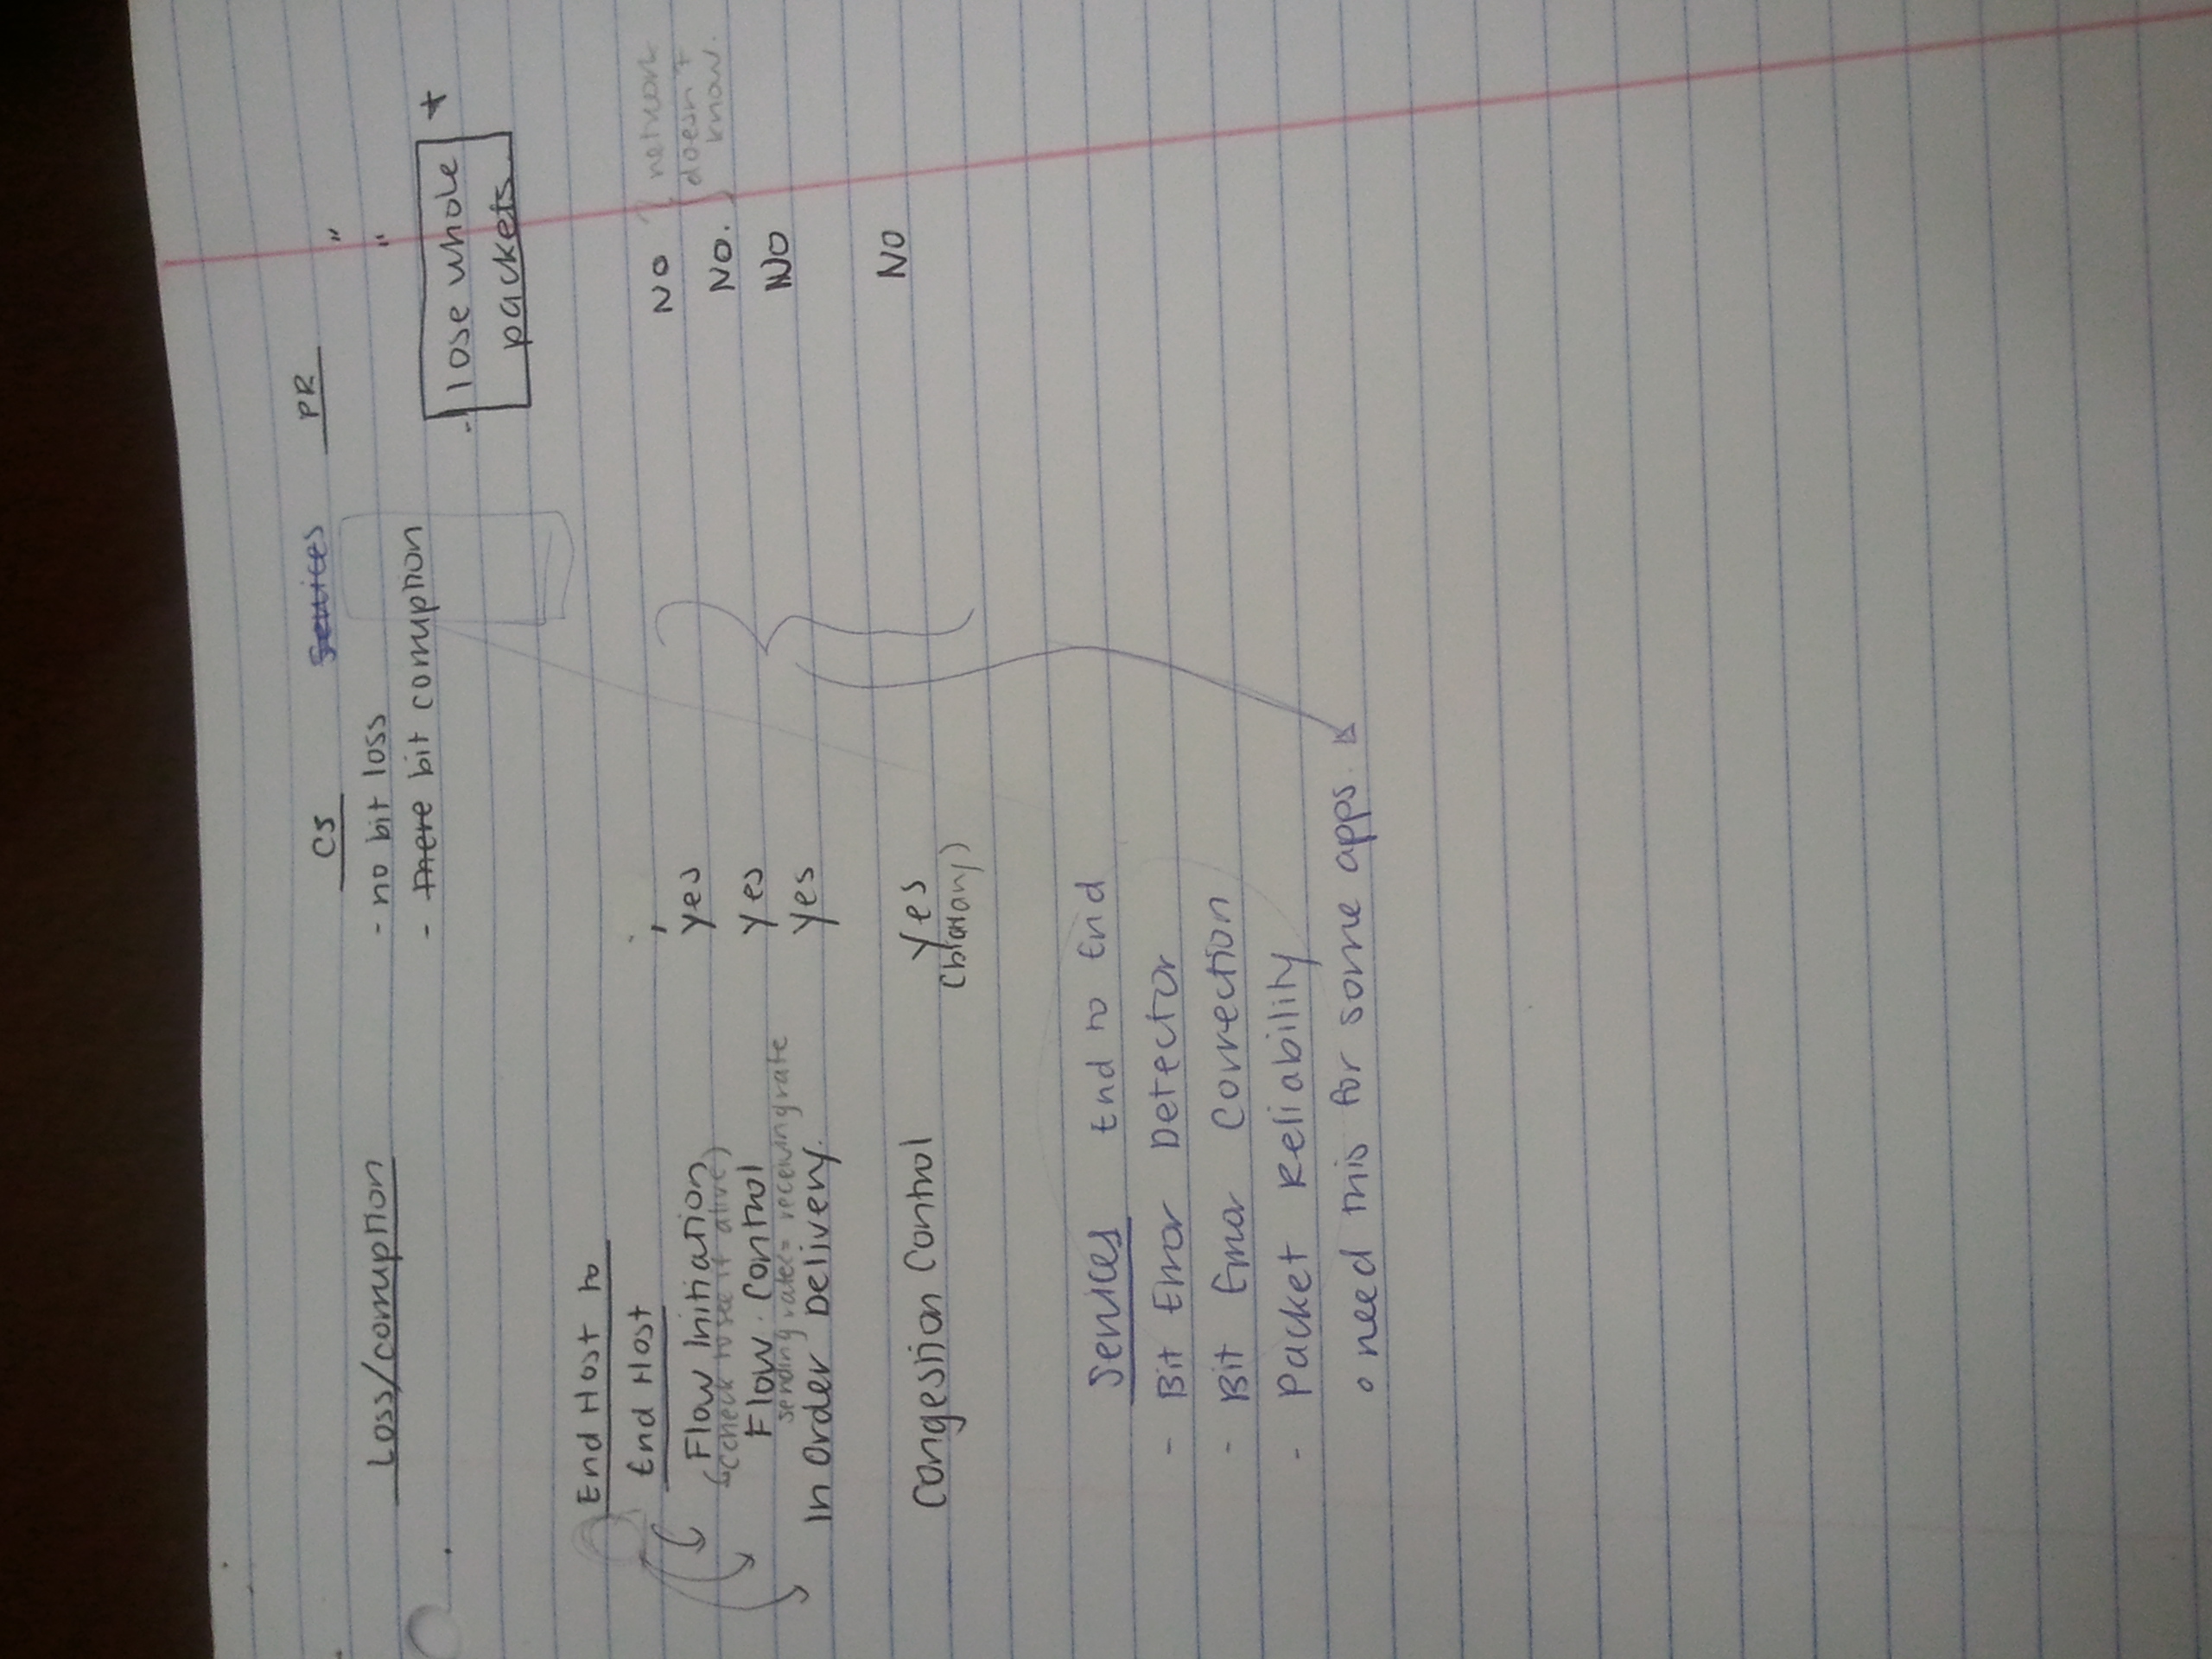 CS Services PR
Loss/corruption - no bit loss "
- there bit corruption "
- lose whole *
packets
End Host to
End Host
Flow Initiation yes NO network
(check to see if alive) doesn't
know.
Flow Control yes NO.
sending rate <= receiving rate
In Order Delivery. yes NO
Congestion Control yes NO
Services End to End
- Bit Error Detector
- Bit Error Correction
- Packet Reliability
o need this for some apps